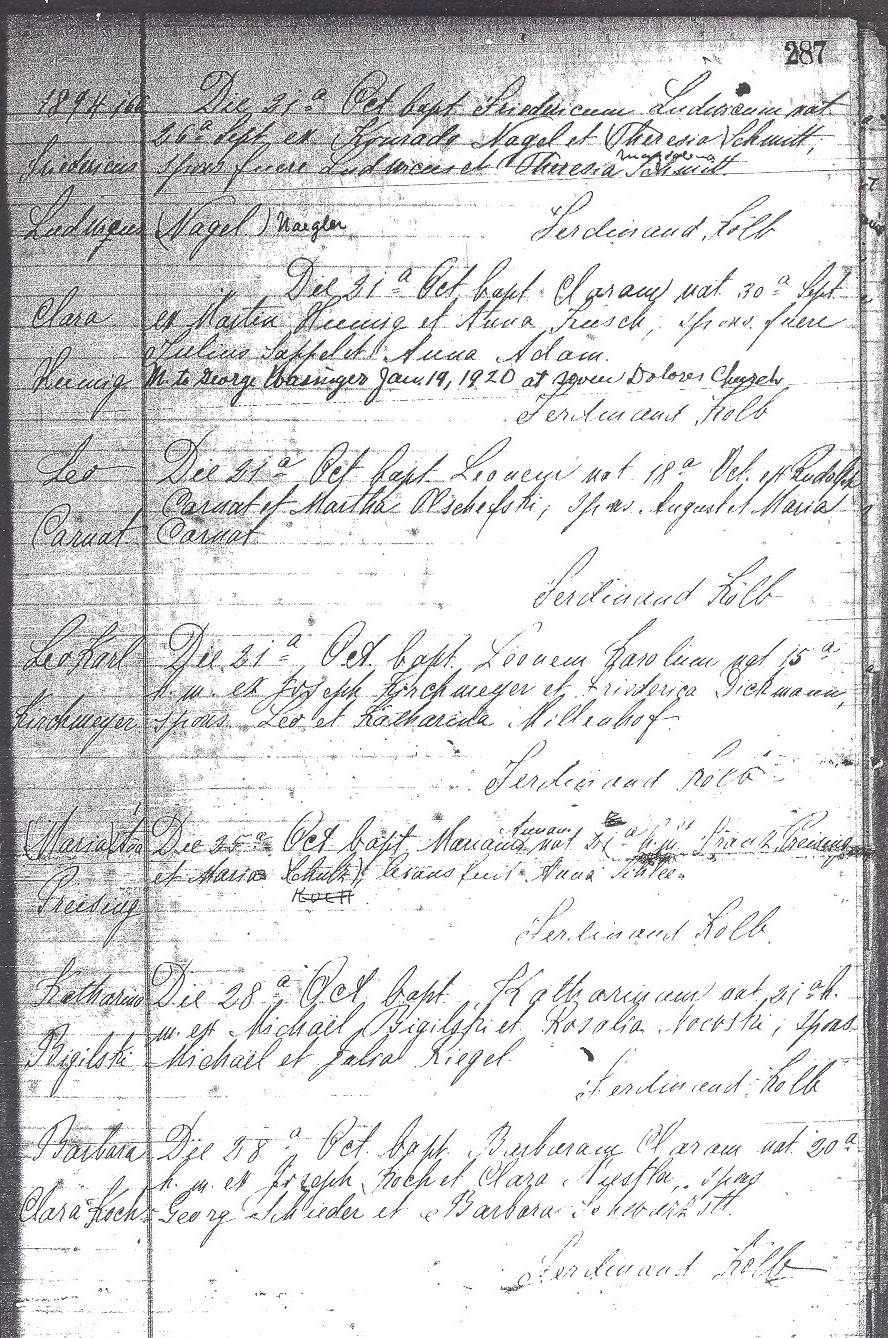 287
1894 Die 21a Oct bapt Friedericum Ludvicum nat.
26a Sept ex Konrado Nagel et (Theresia) Schmitt,
Magdalena
Friedericus spons fuere Ludvicus et Theresia Schmitt.
Ludvicus (Nagel) Naegler Ferdinand Kolb
Die 21a Oct bapt Claram nat 30a Sept
Clara ex Martin Hennig et Anna Frisch; spons. fuere
Julius Sappel et Anna Adam.
Hennig M. to George Wassinger Jan 19, 1920 at seven Dolores Church
Ferdinand Kolb
Leo Die 21a Oct bapt Leonem nat 18a Oct. ex Rudolph
Carnat et Martha Olschefski; spons August et Maria
Carnat Carnat
Ferdinand Kolb
Leo Karl Die 21a Oct. bapt. Leonem Karolum nat 15a
h. m. ex Joseph Kirchmeyer et Friederica Dickmann,
Kirchmeyer spons Leo et Katharina Miltenhof
Ferdinand Kolb
Annam
(Maria) Die 25a Oct bapt Mariam nat 21a h. m. Franz Preising
et Maria (Schultz); levans fuit Anna
Koch
Preising
Ferdinand Kolb
Katharina Die 28a Oct bapt. Katharinam nat 21a h.
m. ex Michaël Bigilski et Rosalia Novoski; spons
Bigilski Michaël et Julia Riegel
Ferdinand Kolb
Barbara Die 28a Oct. bapt. Barbaram Claram nat 20a
h. m. ex Joseph Koch et Clara spons
Clara Koch Georg Schieder et Barbara
Ferdinand Kolb